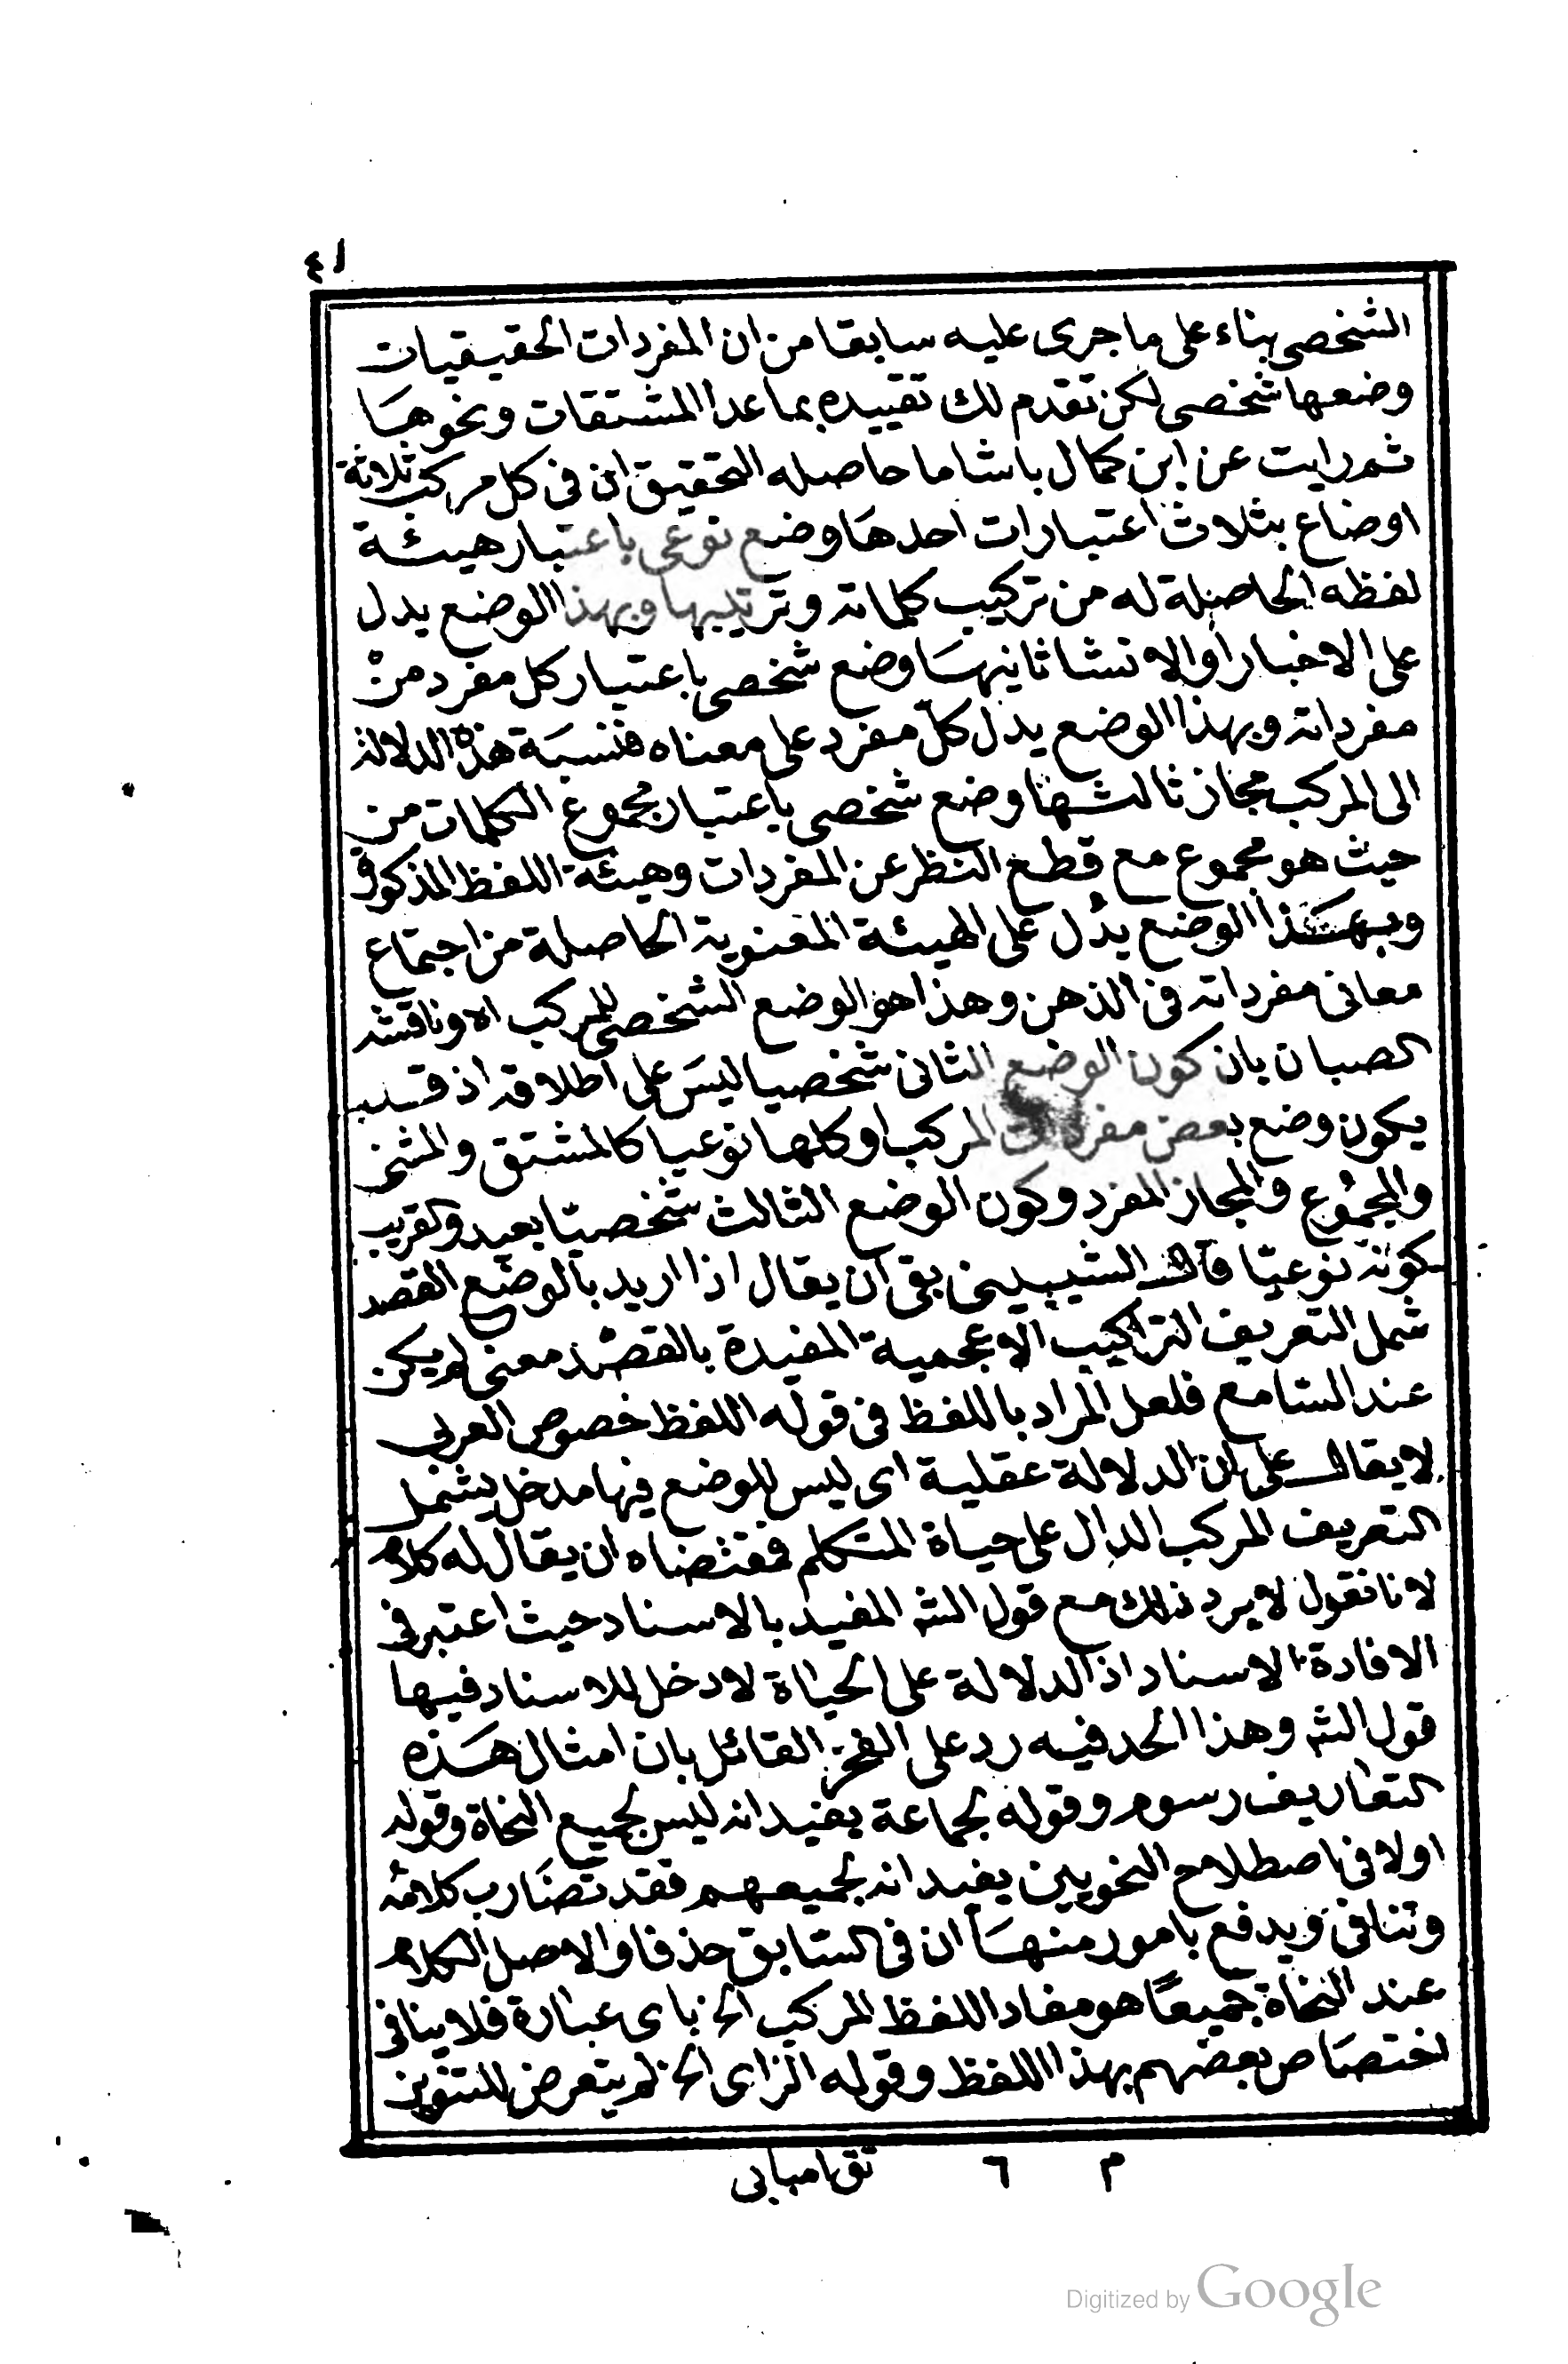 ٤١
الشخصى بناء على ما جرى عليه سابقا من ان المفردات الحقيقيات
وضعها شخصى لكن تقدم لك تقييده بما عدا المشتقات ونحوها
ثم رايت عن ابن كمال باشا ما حاصله التحقيق ان فى كل مركب ثلاثة
اوضاع بثلاث اعتبارات احدها وضع نوعى باعتبار هيئة
لفظه الحاصلة له من تركيب كلماته وترتيبها وبهذا الوضع يدل
على الاخبار او الانشا ثانيها وضع شخصى باعتبار كل مفرد من
مفرداته وبهذا الوضع يدل كل مفرد على معناه فنسبة هذه الدلالة
الى المركب مجاز ثالثها وضع شخصى باعتبار مجموع الكلمات من
حيث هو مجموع مع قطع النظر عن المفردات وهيئة اللفظ المذكورة
وبهذا الوضع يدل على الهيئة المعنوية الحاصلة من اجتماع
معانى مفرداته فى الذهن وهذا هو الوضع الشخصى للمركب اه وناقشه
الصبان بان كون الوضع الثانى شخصيا ليس على اطلاقه اذ قد
يكون وضع بعض مفردات المركب او كلها نوعيا كالمشتق والمثنى
والمجموع والمجاز المفرد وكون الوضع الثالث شخصيّا بعيد والقريب
كونه نوعيّا قال الشيبينى بقى ان يقال اذا اريد بالوضع القصد
شمل التعريف التراكيب الاعجمية المفيدة بالقصد معنى لم يكن
عند السامع فلعل المراد باللفظ فى قوله اللفظ خصوص العربى
لا يقال على ان الدلالة عقلية اى ليس للوضع فيها مدخل يشمل
التعريف المركب الدال على حياة المتكلم فمقتضاه ان يقال له كلام
لانا نقول لا يرد ذلك مع قول الشه المفيد بالاسناد حيث اعتبر فى
الافادة الاسناد اذ الدلالة على الحياة لا دخل للاسناد فيها
قول الشه وهذا الحد فيه رد على الفخر القائل بان امثال هذه
التعاريف رسوم وقوله لجماعة يفيد انه ليس لجميع النحاة وقوله
اولا فى اصطلاح النحويين يفيد انه لجميعهم فقد تضارب كلامه
وتنافى ويدفع بامور منها ان فى السابق حذفا والاصل الكلام
عند النحاة جميعًا هو مفاد اللفظ المركب الخ باى عبارة فلا ينافى
اختصاص بعضهم بهذا اللفظ وقوله الزاى الخ لم يتعرض للتنوين
م ٦ تق امبابى
Digitized by Google